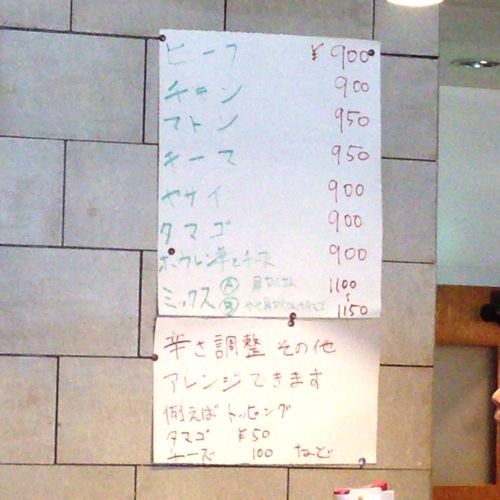 ビーフ ¥900
チキン 900
マトン 950
キーマ 950
ヤサイ 900
タマゴ 900
ホウレン草とチーズ 900
ミックス Ⓐ 1100
Ⓑ 1150
辛さ調整 その他
アレンジできます
例えば トッピング
タマゴ ¥50
チーズ 100 など